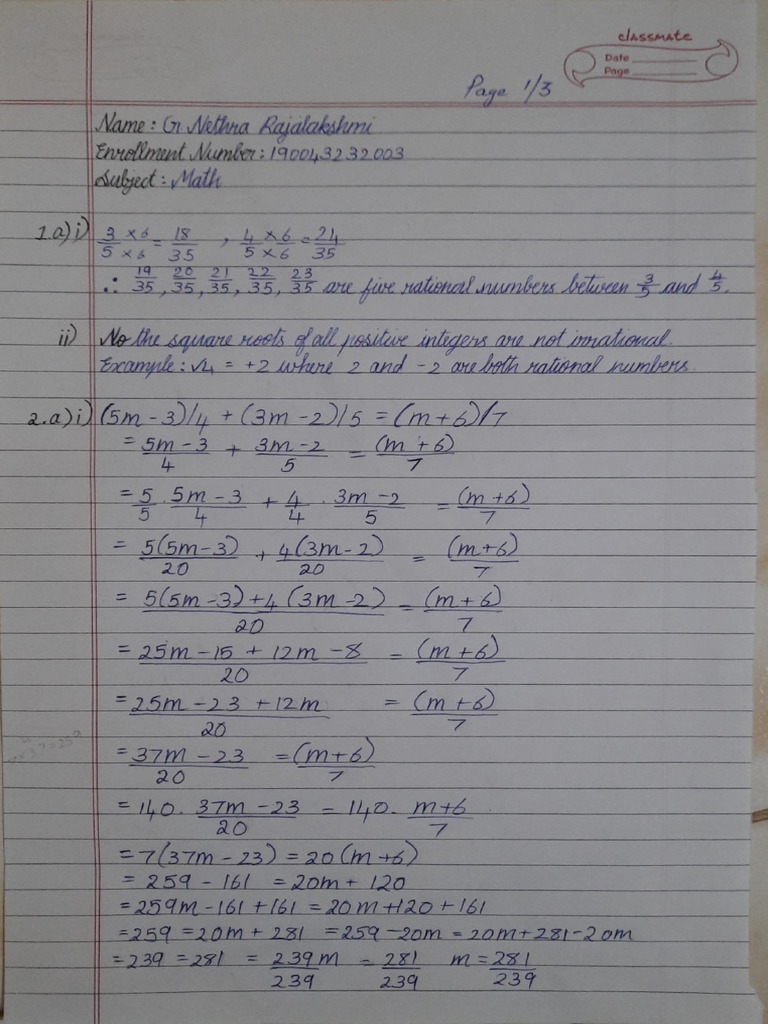 classmate
Date
Page
Page 1/3
Name: G Nethra Rajalakshmi
Enrollment Number: 190043232003
Subject: Math
1.a) i) 3/5 × 6/6 = 18/35 , 4/5 × 6/6 = 24/35
∴ 19/35, 20/35, 21/35, 22/35, 23/35 are five rational numbers between 3/5 and 4/5.
ii) No the square roots of all positive integers are not irrational.
Example: √4 = +2 where 2 and -2 are both rational numbers.
2.a) i) (5m-3)/4 + (3m-2)/5 = (m+6)/7
= 5m-3/4 + 3m-2/5 = (m+6)/7
= 5/5 . 5m-3/4 + 4/4 . 3m-2/5 = (m+6)/7
= 5(5m-3)/20 + 4(3m-2)/20 = (m+6)/7
= 5(5m-3)+4(3m-2)/20 = (m+6)/7
= 25m-15+12m-8/20 = (m+6)/7
= 25m-23+12m/20 = (m+6)/7
= 37m-23/20 = (m+6)/7
= 140. 37m-23/20 = 140. m+6/7
= 7(37m-23) = 20(m+6)
= 259-161 = 20m+120
= 259m-161+161 = 20m+120+161
= 259 = 20m+281 = 259-20m = 20m+281-20m
= 239 = 281 = 239m/239 = 281/239 m = 281/239